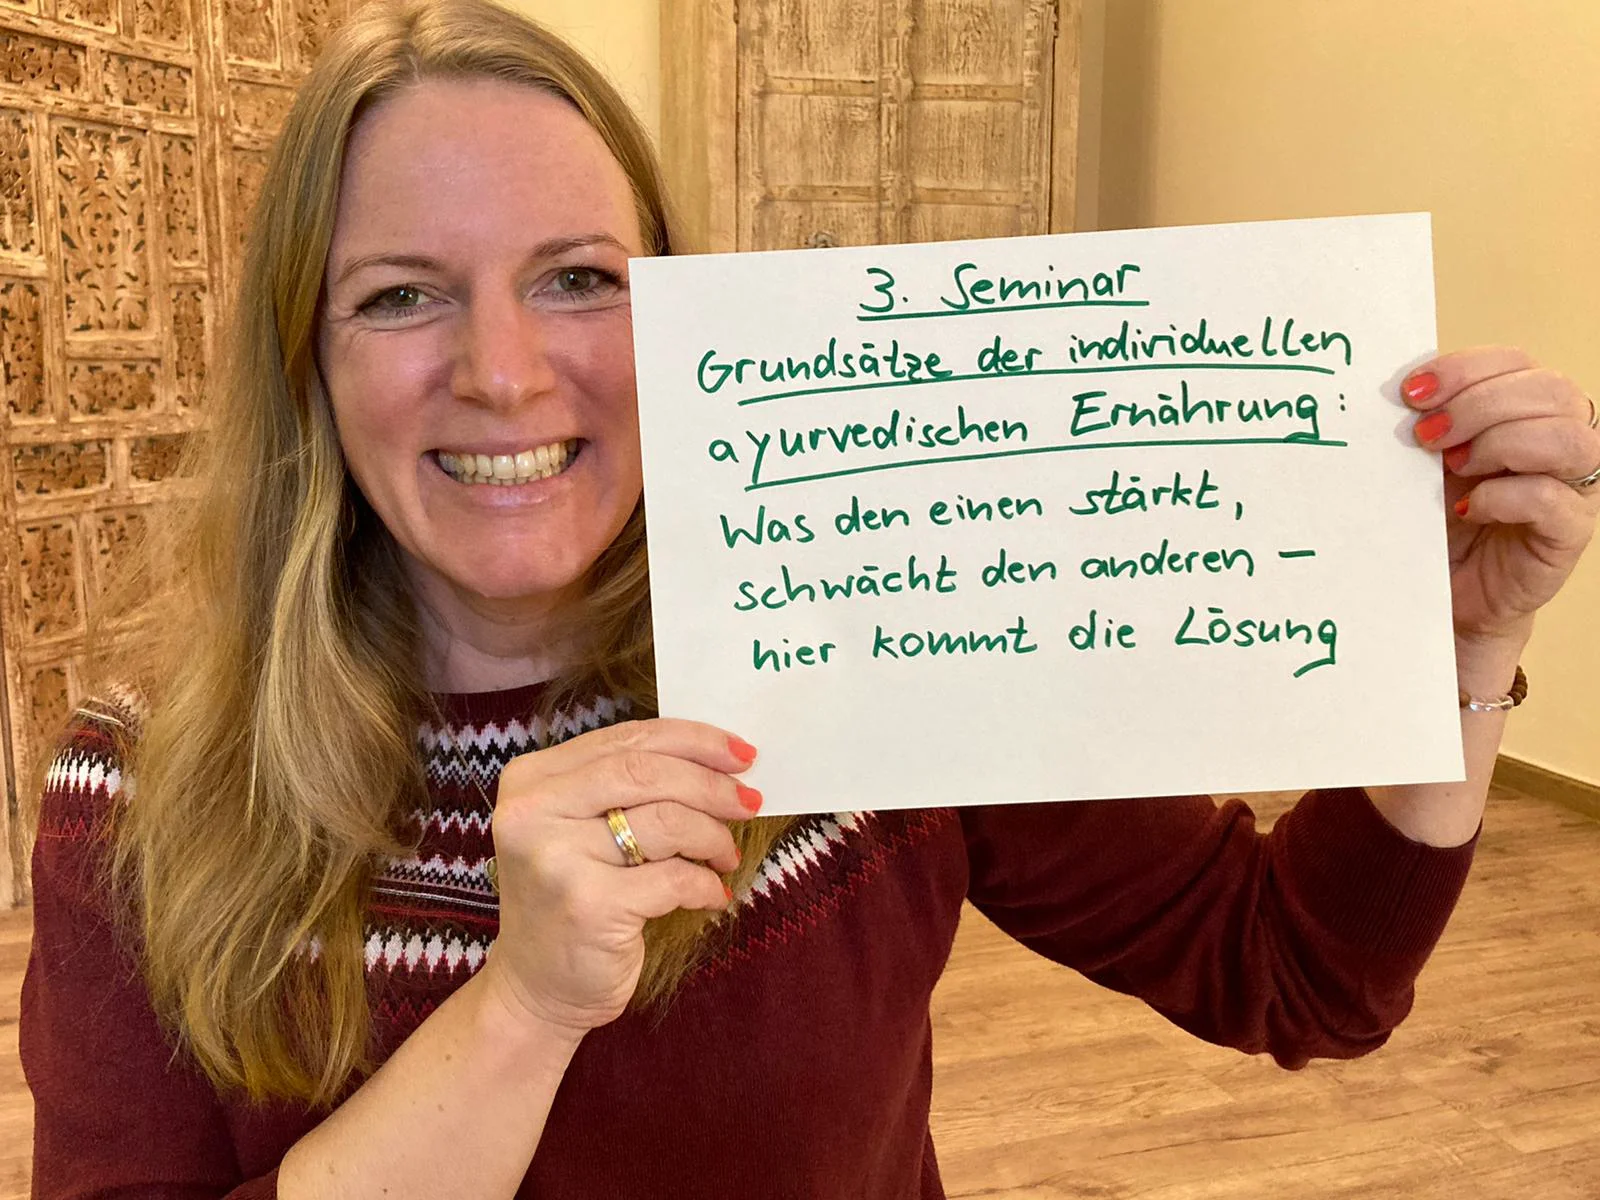 3. Seminar
Grundsätze der individuellen
ayurvedischen Ernährung:
Was den einen stärkt,
schwächt den anderen –
hier kommt die Lösung